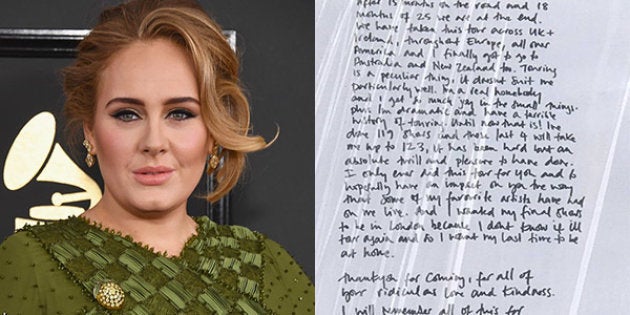 After 15 months on the road and 18
months of 25 we are at the end.
We have taken this tour across UK +
Ireland, throughout Europe, all over
America and I finally got to go to
Australia and New Zealand too. Touring
is a peculiar thing, it doesnt suit me
particularly well. Im a real homebody
and I get so much joy in the small things.
plus Im dramatic and have a terrible
history of touring. Until now that is! Ive
done 119 shows and these last 4 will take
me up to 123, it has been hard but an
absolute thrill and pleasure to have done.
I only ever did this tour for you and to
hopefully have an impact on you the way
that some of my favourite artists have had
on me live. And I wanted my final shows
to be in London because I dont know if Ill
tour again and so I want my last time to be
at home.
Thankyou for coming, for all of
your ridiculous love and kindness.
I will remember all of this for